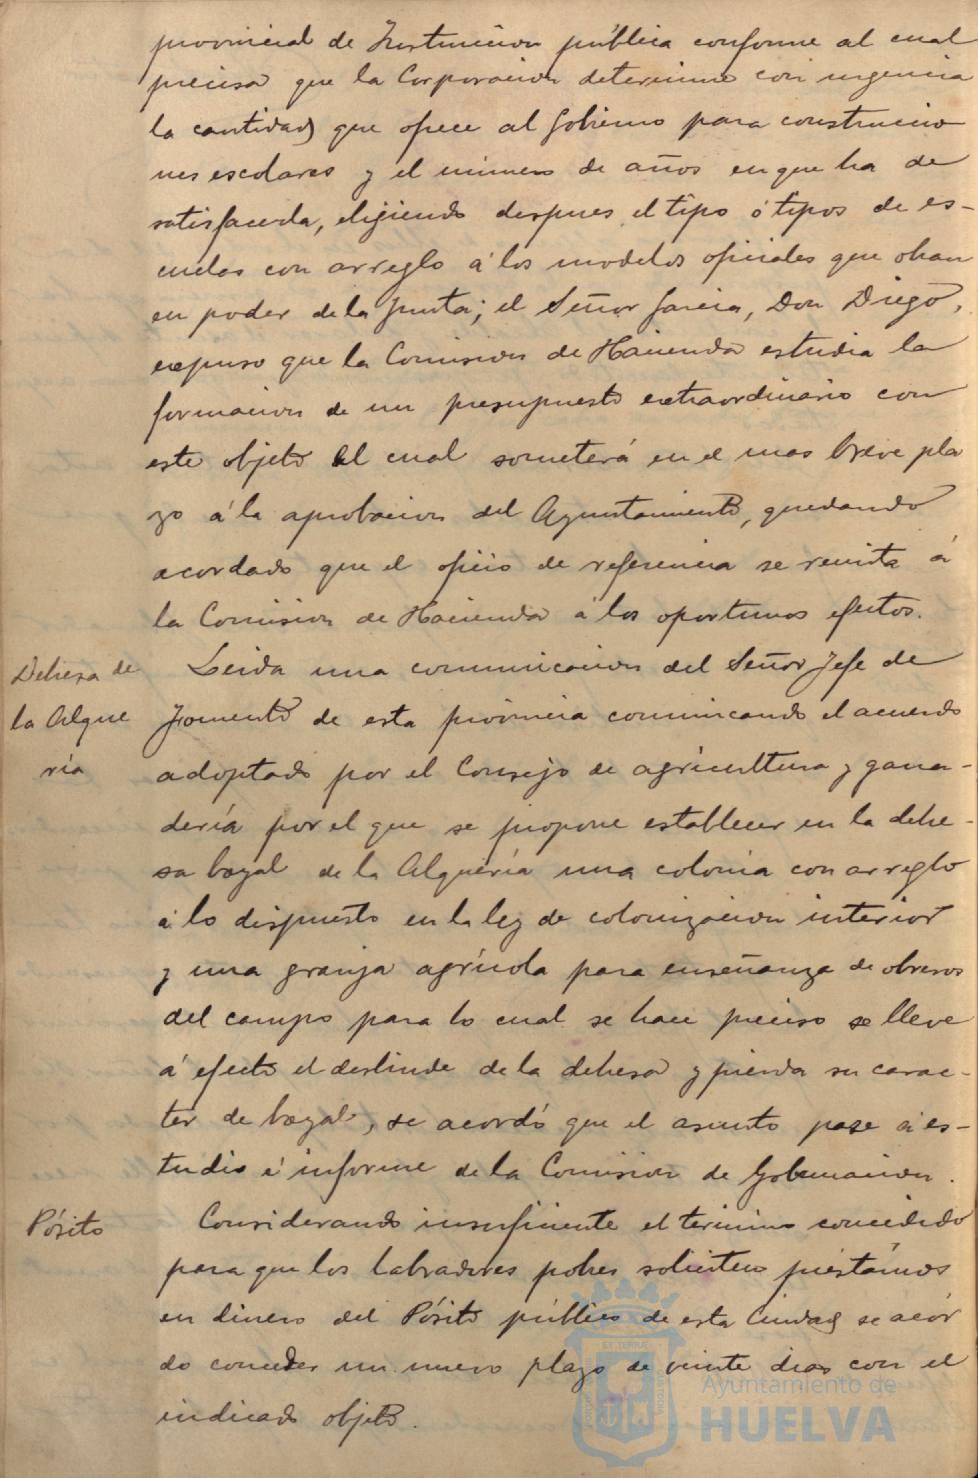 provincial de Instruccion pública conforme al cual
precisa que la Corporacion determine con urgencia
la cantidad que ofrece al Gobierno para construccio
nes escolares y el número de años en que ha de
satisfacerla, eligiendo despues el tipo ó tipos de es-
cuelas con arreglo á los modelos oficiales que obran
en poder de la Junta; el Señor Garcia, Don Diego,
expuso que la Comision de Hacienda estudia la
formacion de un presupuesto extraordinario con
este objeto el cual someterá en el mas breve pla
zo á la aprobacion del Ayuntamiento, quedando
acordado que el oficio de referencia se remita á
la Comision de Hacienda á los oportunos efectos.
Dehesa de
la Alque
ría
Leida una comunicacion del Señor Jefe de
Fomento de esta provincia comunicando el acuerdo
adoptado por el Consejo de agricultura y gana-
dería por el que se propone establecer en la dehe-
sa boyal de la Alquería una colonia con arreglo
á lo dispuesto en la ley de colonizacion interior
y una granja agrícola para enseñanza de obreros
del campo para lo cual se hace preciso se lleve
á efecto el deslinde de la dehesa y pierda su carac-
ter de boyal, se acordó que el asunto pase á es-
tudio é informe de la Comision de Gobernacion.
Pósito
Considerando insuficiente el termino concedido
para que los labradores pobres soliciten préstamos
en dinero del Pósito público de esta Ciudad se acor
do conceder un nuevo plazo de veinte dias con el
indicado objeto.
Ayuntamiento de
HUELVA